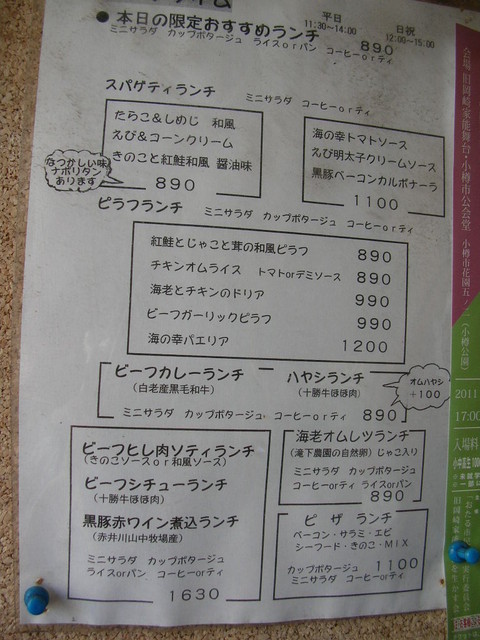 イム
● 本日の限定おすすめランチ 平日 11:30~14:00 日祝 12:00~15:00
ミニサラダ カップポタージュ ライスorパン コーヒーorティ 890
スパゲティランチ ミニサラダ コーヒーorティ
たらこ&しめじ 和風
えび&コーンクリーム
きのこと紅鮭和風 醤油味
890
なつかしい味
ナポリタン
あります
海の幸トマトソース
えび明太子クリームソース
黒豚ベーコンカルボナーラ
1100
ピラフランチ ミニサラダ カップポタージュ コーヒーorティ
紅鮭とじゃこと茸の和風ピラフ 890
チキンオムライス トマトorデミソース 890
海老とチキンのドリア 990
ビーフガーリックピラフ 990
海の幸パエリア 1200
ビーフカレーランチ ハヤシランチ
(白老産黒毛和牛) (十勝牛ほほ肉)
オムハヤシ
+100
ミニサラダ カップポタージュ コーヒーorティ 890
ビーフヒレ肉ソティランチ
(きのこソースor和風ソース)
ビーフシチューランチ
(十勝牛ほほ肉)
黒豚赤ワイン煮込ランチ
(赤井川山中牧場産)
ミニサラダ カップポタージュ
ライスorパン コーヒーorティ
1630
海老オムレツランチ
(滝下農園の自然卵)じゃこ入り
ミニサラダ カップポタージュ
コーヒーorティ ライスorパン
890
ピザ ランチ
ベーコン・サラミ・エビ
シーフード・きのこ・MIX
カップポタージュ 1100
ミニサラダ コーヒーorティ
会場 旧岡崎家能舞台・小樽市公会堂
2011
17:00
入場料